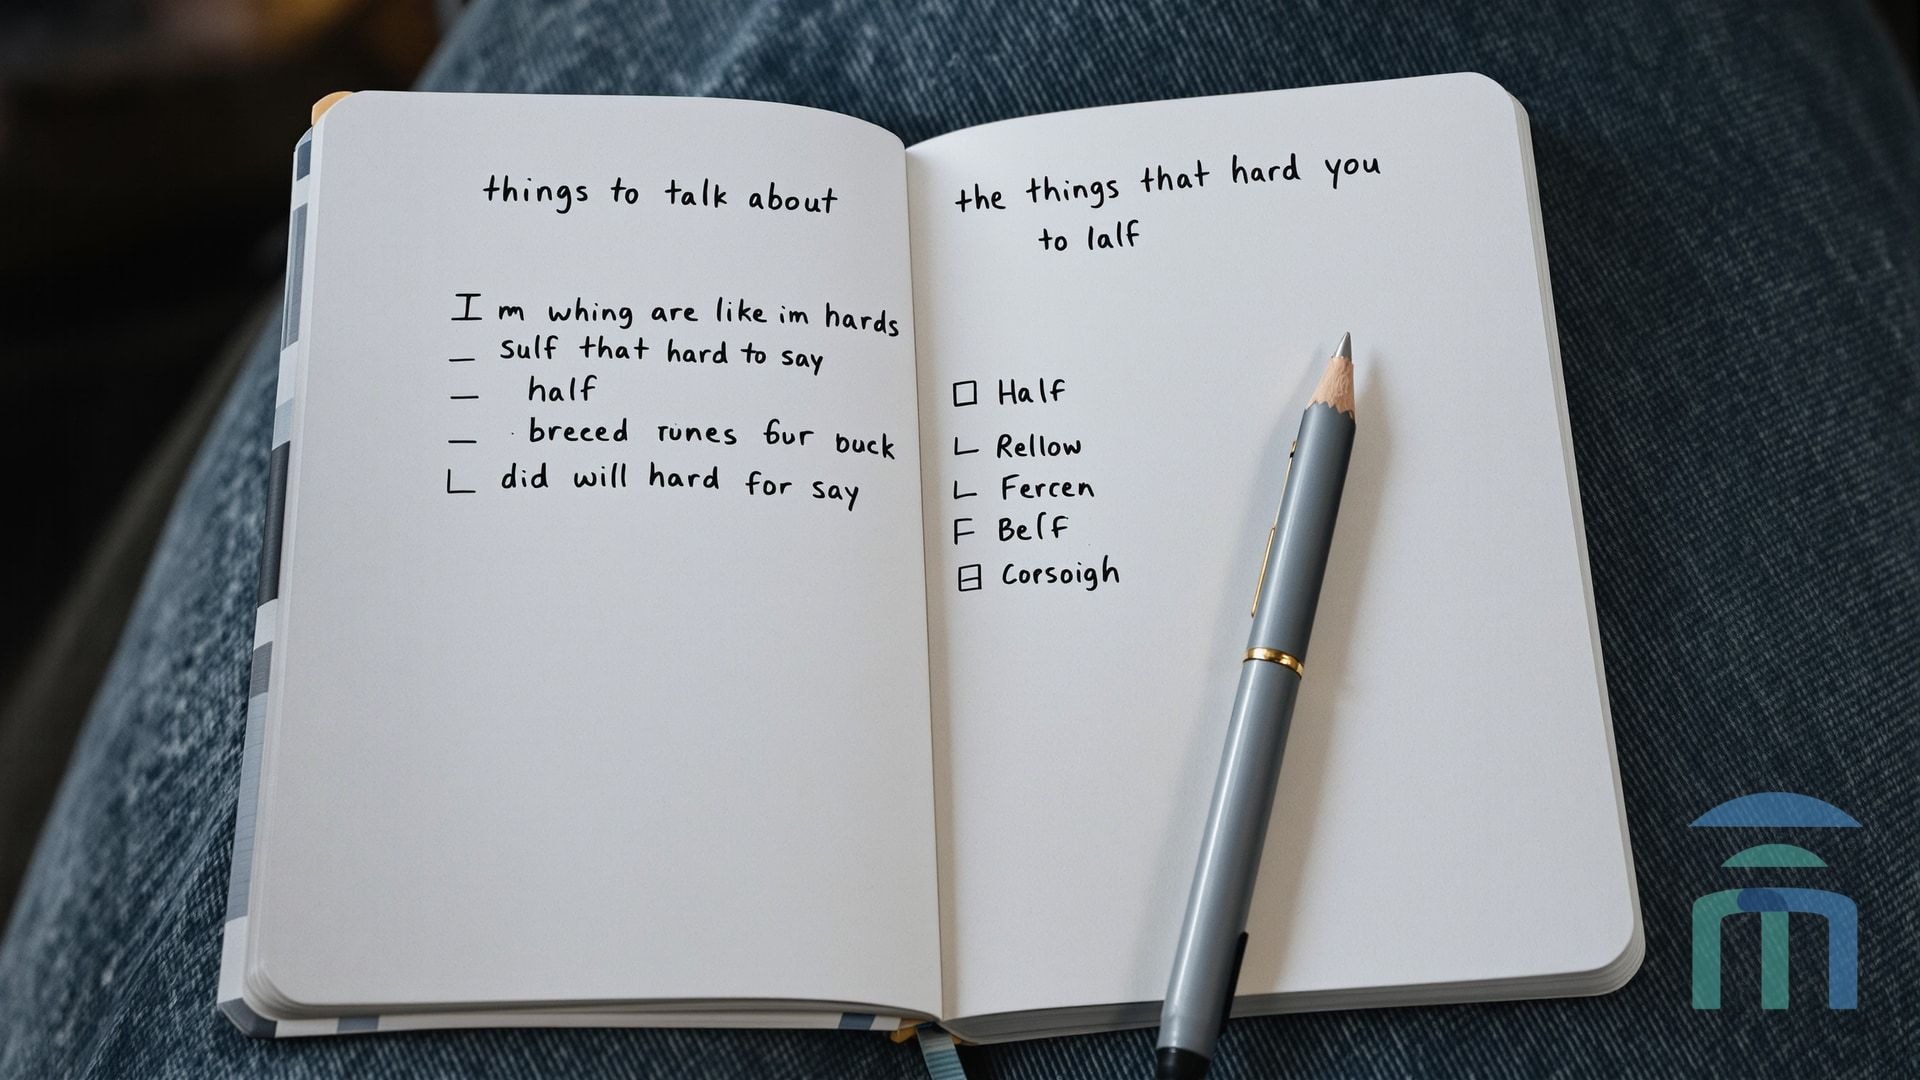 things to talk about
I m whing are like im hards
sulf that hard to say
half
breced runes bur buck
did will hard for say
the things that hard you
to lalf
Half
Rellow
Fercen
Belf
Corsoigh